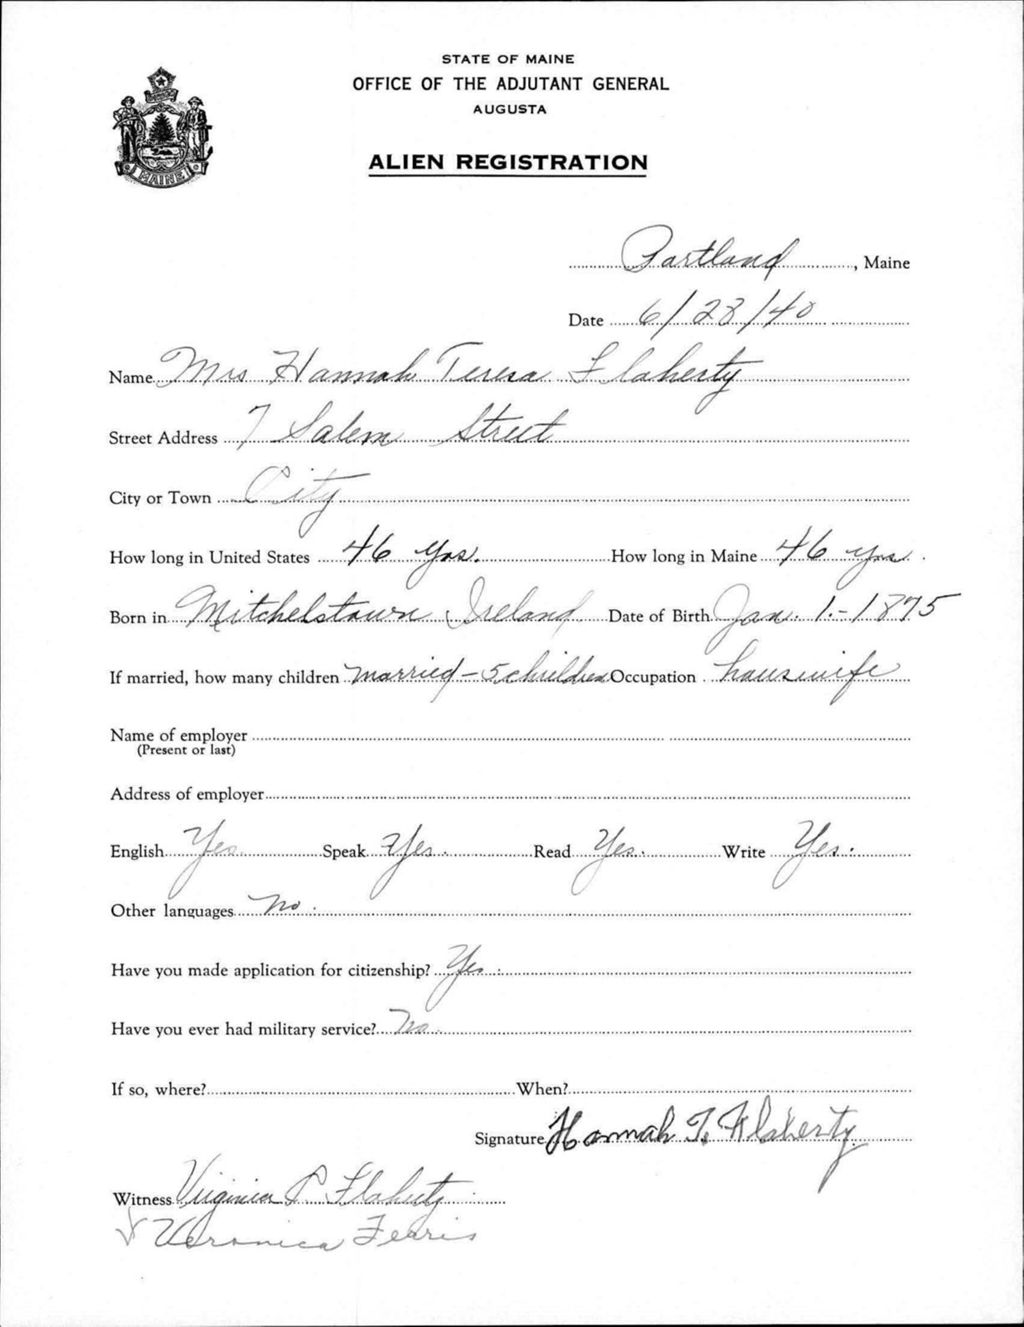 STATE OF MAINE
OFFICE OF THE ADJUTANT GENERAL
AUGUSTA
ALIEN REGISTRATION
MAINE
Portland, Maine
Date 6/28/40
Name Mrs Hannah Teresa Flaherty
Street Address 7 Salem Street
City or Town City
How long in United States 46 yrs. How long in Maine 46 yrs.
Born in Mitchelstown Ireland Date of Birth Jan. 1 - 1875
If married, how many children married - 5 children Occupation housewife
Name of employer
(Present or last)
Address of employer
English Yes Speak Yes. Read Yes. Write Yes.
Other languages no.
Have you made application for citizenship? Yes.
Have you ever had military service? No
If so, where? When?
Signature Hannah T. Flaherty
Witness Virginia P Flaherty
Veronica Ferris